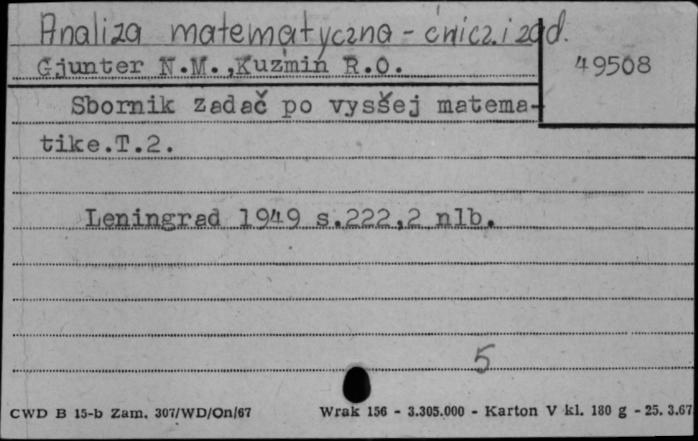 Analiza matematyczna - ćwicz. i zad.
Gjunter N.M.,Kuzmin R.O.
49508
Sbornik zadač po vysšej matema-
tike.T.2.
Leningrad 1949 s.222,2 nlb.
5
CWD B 15-b Zam. 307/WD/On/67
Wrak 156 - 3.305.000 - Karton V kl. 180 g - 25. 3.67